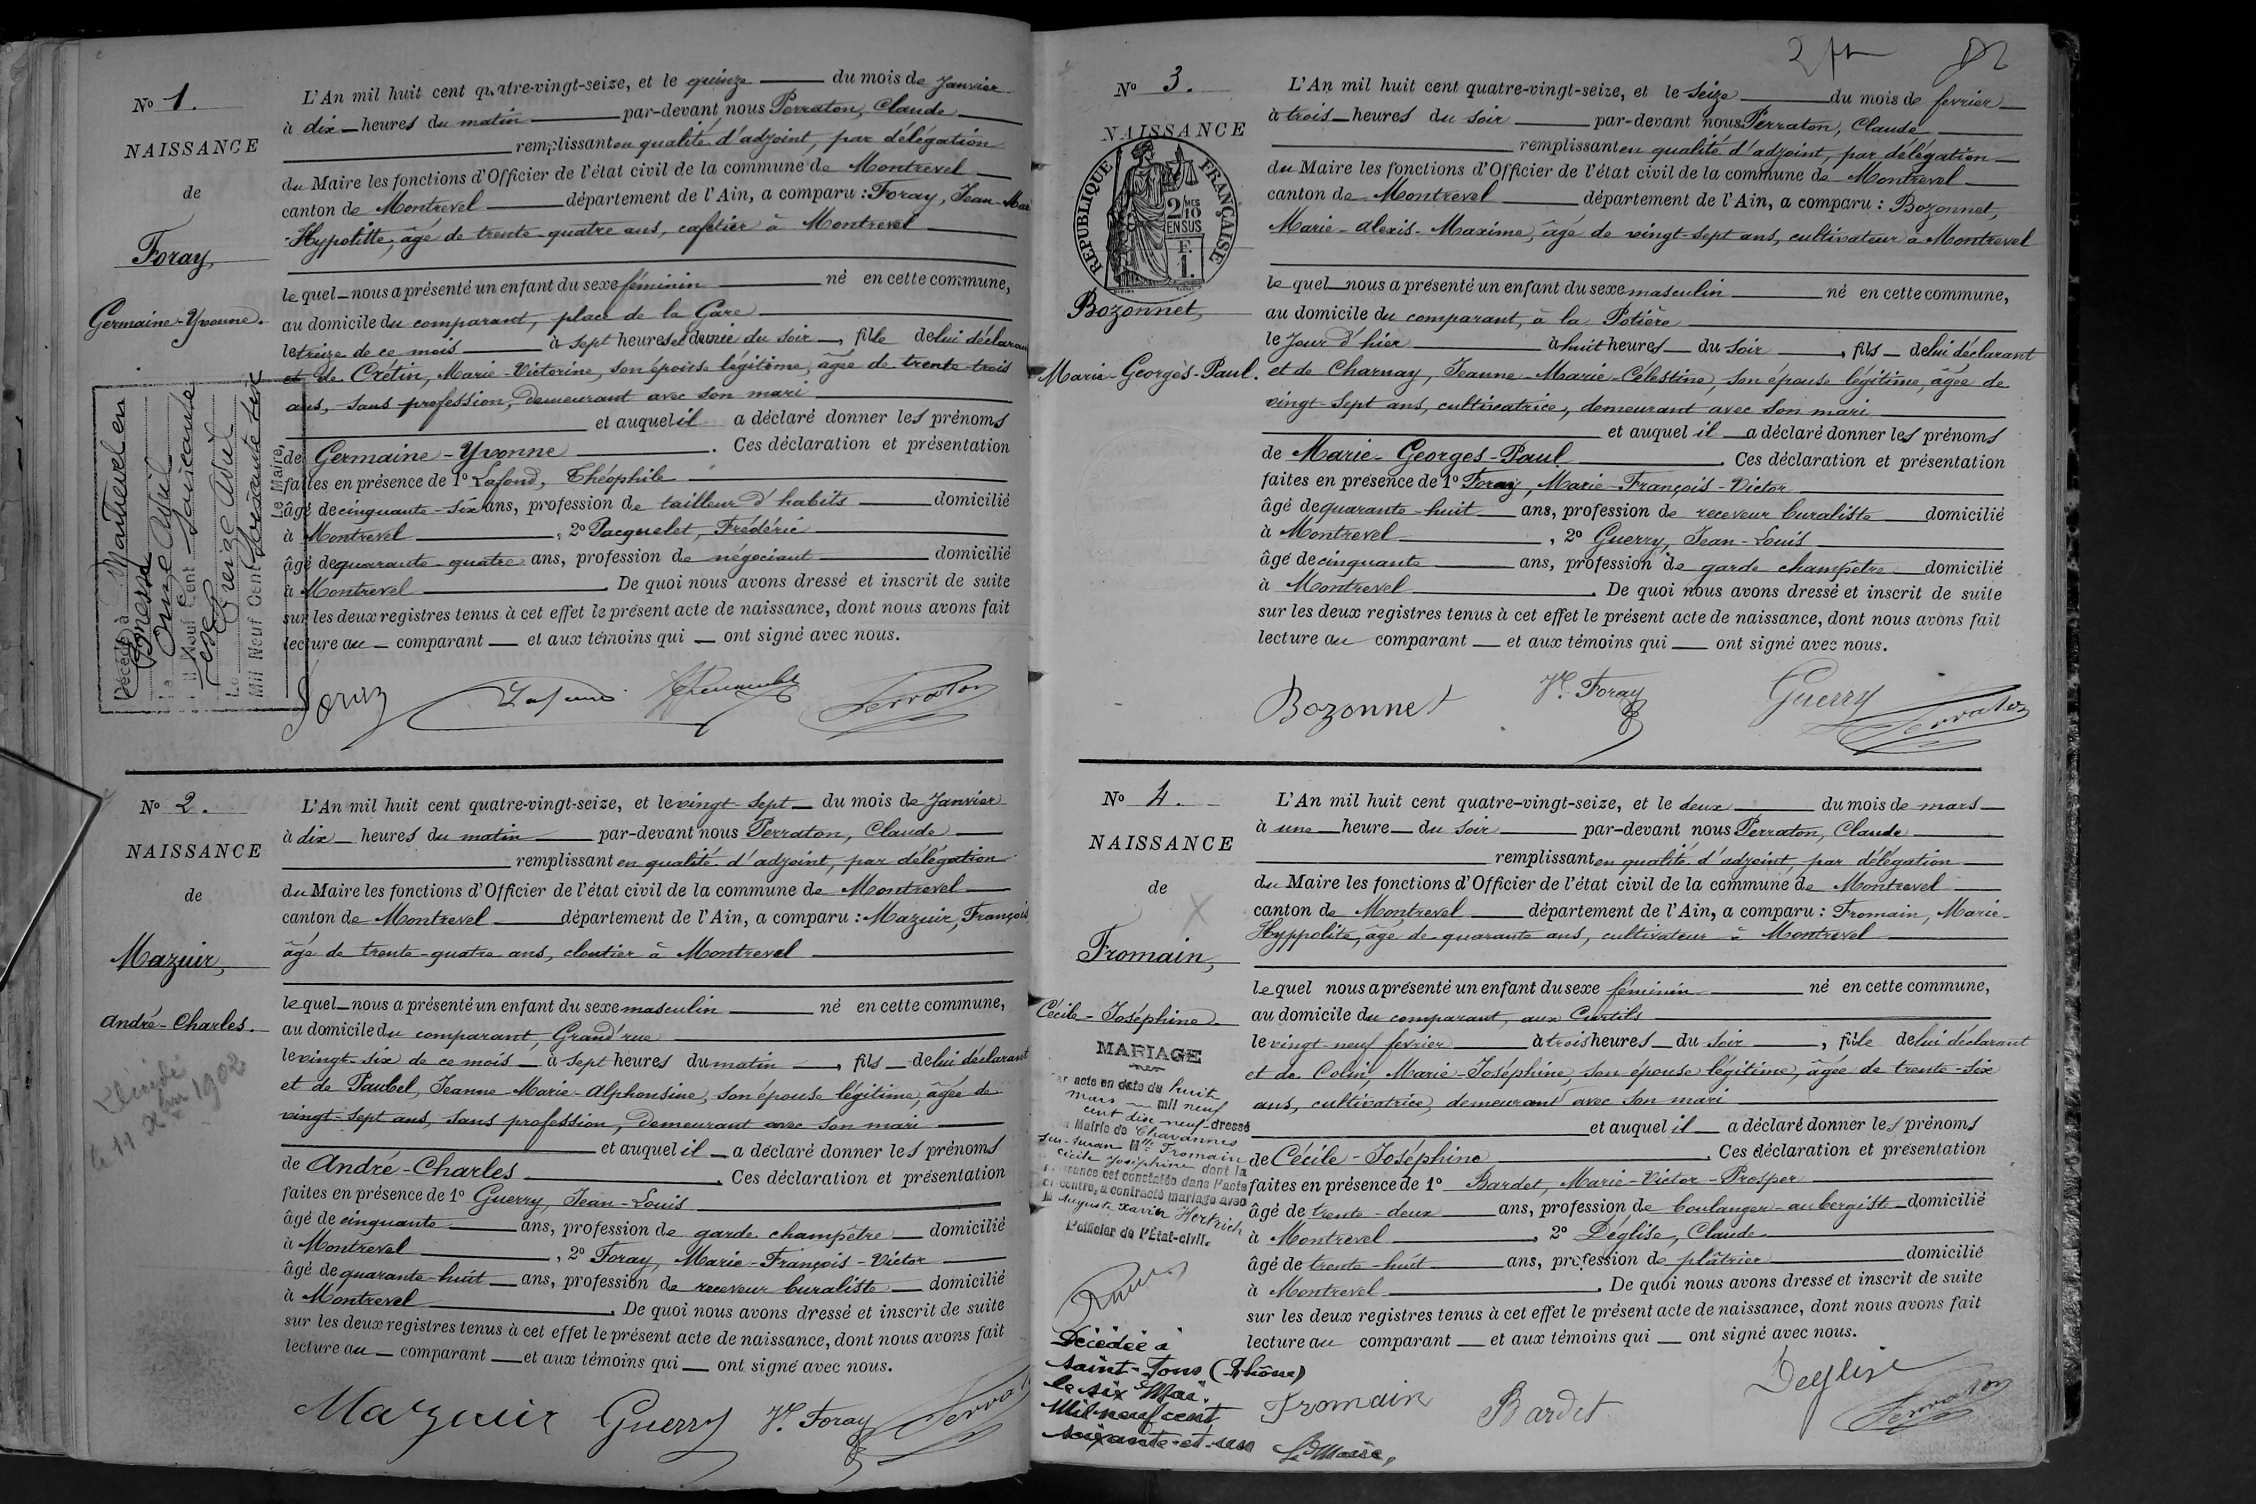 N° 1.
NAISSANCE
de
Foray,
Germaine-Yvonne.
L'An mil huit cent quatre-vingt-seize, et le quinze du mois de Janvier
à dix heures du matin par-devant nous Perraton, Claude
remplissant en qualité d'adjoint, par délégation
du Maire les fonctions d'Officier de l'état civil de la commune de Montrevel
canton de Montrevel département de l'Ain, a comparu : Foray, Jean-Mar
-Hypolitte, âgé de trente-quatre ans, cafetier à Montrevel
lequel nous a présenté un enfant du sexe féminin né en cette commune,
au domicile du comparant, place de la Gare
le treize de ce mois à sept heures et demie du soir, fille de lui déclarant
et de Crétin, Marie-Victorine, son épouse légitime, âgée de trente-trois
ans, sans profession, demeurant avec son mari
et auquel il a déclaré donner les prénoms
de Germaine-Yvonne. Ces déclaration et présentation
faites en présence de 1° Lafond, Théophile
âgé de cinquante-six ans, profession de tailleur d'habits domicilié
à Montrevel, 2° Pacquelet, Frédéric
âgé de quarante-quatre ans, profession de négociant domicilié
à Montrevel. De quoi nous avons dressé et inscrit de suite
sur les deux registres tenus à cet effet le présent acte de naissance, dont nous avons fait
lecture au comparant et aux témoins qui ont signé avec nous.
Décédée à
le onze avril
Mil Neuf Cent soixante
Le treize avril
Mil Neuf Cent soixante six
Le Maire,
Foray Lafond Perraton
N° 2.
NAISSANCE
de
Mazuir,
André-Charles.
le 11 Xbre 1902
L'An mil huit cent quatre-vingt-seize, et le vingt-sept du mois de Janvier
à dix heures du matin par-devant nous Perraton, Claude
remplissant en qualité d'adjoint, par délégation
du Maire les fonctions d'Officier de l'état civil de la commune de Montrevel
canton de Montrevel département de l'Ain, a comparu : Mazuir, François
âgé de trente-quatre ans, cloutier à Montrevel
lequel nous a présenté un enfant du sexe masculin né en cette commune,
au domicile du comparant, Grand'rue
le vingt-six de ce mois à sept heures du matin, fils de lui déclarant
et de Paubel, Jeanne-Marie-Alphonsine, son épouse légitime, âgée de
vingt-sept ans, sans profession, demeurant avec son mari
et auquel il a déclaré donner les prénoms
de André-Charles. Ces déclaration et présentation
faites en présence de 1° Guerry, Jean-Louis
âgé de cinquante ans, profession de garde champêtre domicilié
à Montrevel, 2° Foray, Marie-François-Victor
âgé de quarante-huit ans, profession de receveur buraliste domicilié
à Montrevel. De quoi nous avons dressé et inscrit de suite
sur les deux registres tenus à cet effet le présent acte de naissance, dont nous avons fait
lecture au comparant et aux témoins qui ont signé avec nous.
Mazuir Guerry Vr. Foray Perraton
N° 3.
NAISSANCE
RÉPUBLIQUE FRANÇAISE
2/10 EN SUS
Bozonnet,
Marie-Georges-Paul.
L'An mil huit cent quatre-vingt-seize, et le seize du mois de fevrier
à trois heures du soir par-devant nous Perraton, Claude
remplissant en qualité d'adjoint, par délégation
du Maire les fonctions d'Officier de l'état civil de la commune de Montrevel
canton de Montrevel département de l'Ain, a comparu : Bozonnet,
Marie-Alexis-Maxime, âgé de vingt-sept ans, cultivateur à Montrevel
lequel nous a présenté un enfant du sexe masculin né en cette commune,
au domicile du comparant, à la Potière
le Jour d'hier à huit heures du soir, fils de lui déclarant
et de Charnay, Jeanne-Marie-Célestine, son épouse légitime, âgée de
vingt-sept ans, cultivatrice, demeurant avec son mari
et auquel il a déclaré donner les prénoms
de Marie-Georges-Paul. Ces déclaration et présentation
faites en présence de 1° Foray, Marie-François-Victor
âgé de quarante-huit ans, profession de receveur buraliste domicilié
à Montrevel, 2° Guerry, Jean-Louis
âgé de cinquante ans, profession de garde champêtre domicilié
à Montrevel. De quoi nous avons dressé et inscrit de suite
sur les deux registres tenus à cet effet le présent acte de naissance, dont nous avons fait
lecture au comparant et aux témoins qui ont signé avec nous.
Bozonnet Vr. Foray Guerry Perraton
N° 4.
NAISSANCE
de
Fromain,
Cécile-Joséphine
MARIAGE
acte en date du huit
mars mil neuf
cent dix neuf dressé
Mairie de Chavannes
sur-Suran Mlle Fromain
Cécile Joséphine dont la
naissance est constatée dans l'acte
ci contre, a contracté mariage avec
M Auguste Xavier Hertrich
L'officier de l'Etat-civil.
Décédée à
Saint-Fons (Rhône)
le six Mai
Mil neuf cent
soixante-et-un
Le Maire,
L'An mil huit cent quatre-vingt-seize, et le deux du mois de mars
à une heure du soir par-devant nous Perraton, Claude
remplissant en qualité d'adjoint par délégation
du Maire les fonctions d'Officier de l'état civil de la commune de Montrevel
canton de Montrevel département de l'Ain, a comparu : Fromain, Marie-
Hyppolite, âgé de quarante ans, cultivateur à Montrevel
lequel nous a présenté un enfant du sexe féminin né en cette commune,
au domicile du comparant, aux Curtils
le vingt-neuf fevrier à trois heures du soir, fille de lui déclarant
et de Colin, Marie-Joséphine, son épouse légitime, âgée de trente-six
ans, cultivatrice, demeurant avec son mari
et auquel il a déclaré donner les prénoms
de Cécile-Joséphine. Ces déclaration et présentation
faites en présence de 1° Bardet, Marie-Victor-Prosper
âgé de trente-deux ans, profession de boulanger-aubergiste domicilié
à Montrevel, 2° Déglise, Claude
âgé de trente-huit ans, profession de plâtrier domicilié
à Montrevel. De quoi nous avons dressé et inscrit de suite
sur les deux registres tenus à cet effet le présent acte de naissance, dont nous avons fait
lecture au comparant et aux témoins qui ont signé avec nous.
Fromain Bardet Deglise Perraton